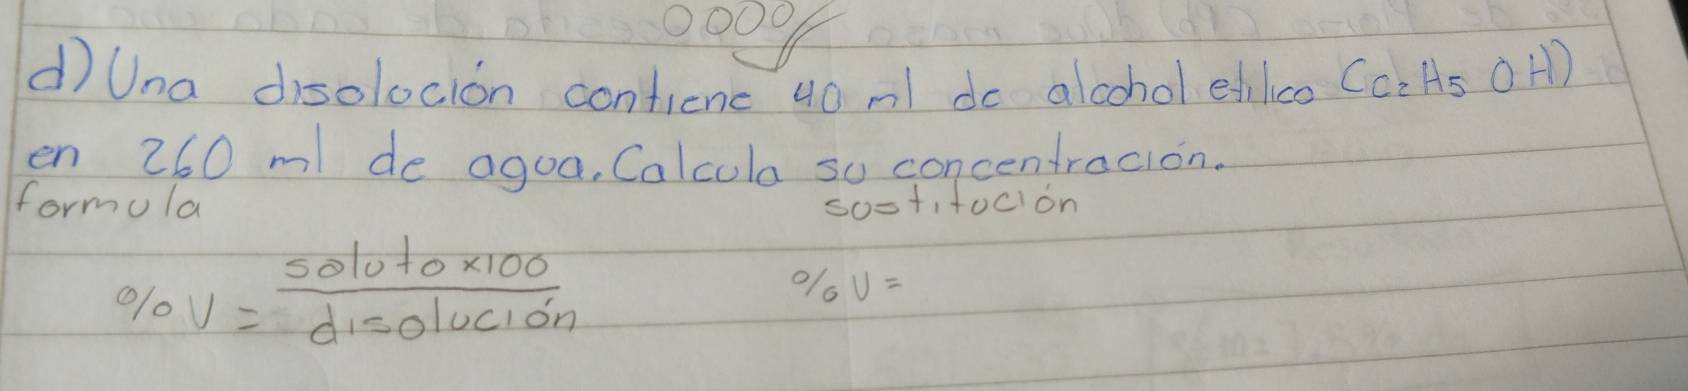 d) Una disolución contiene 40 ml de alcohol etilico (C₂H₅OH)
en 260 ml de agua. Calcula su concentración.
formula sustitución
%V = soluto x100 %V =
disolución